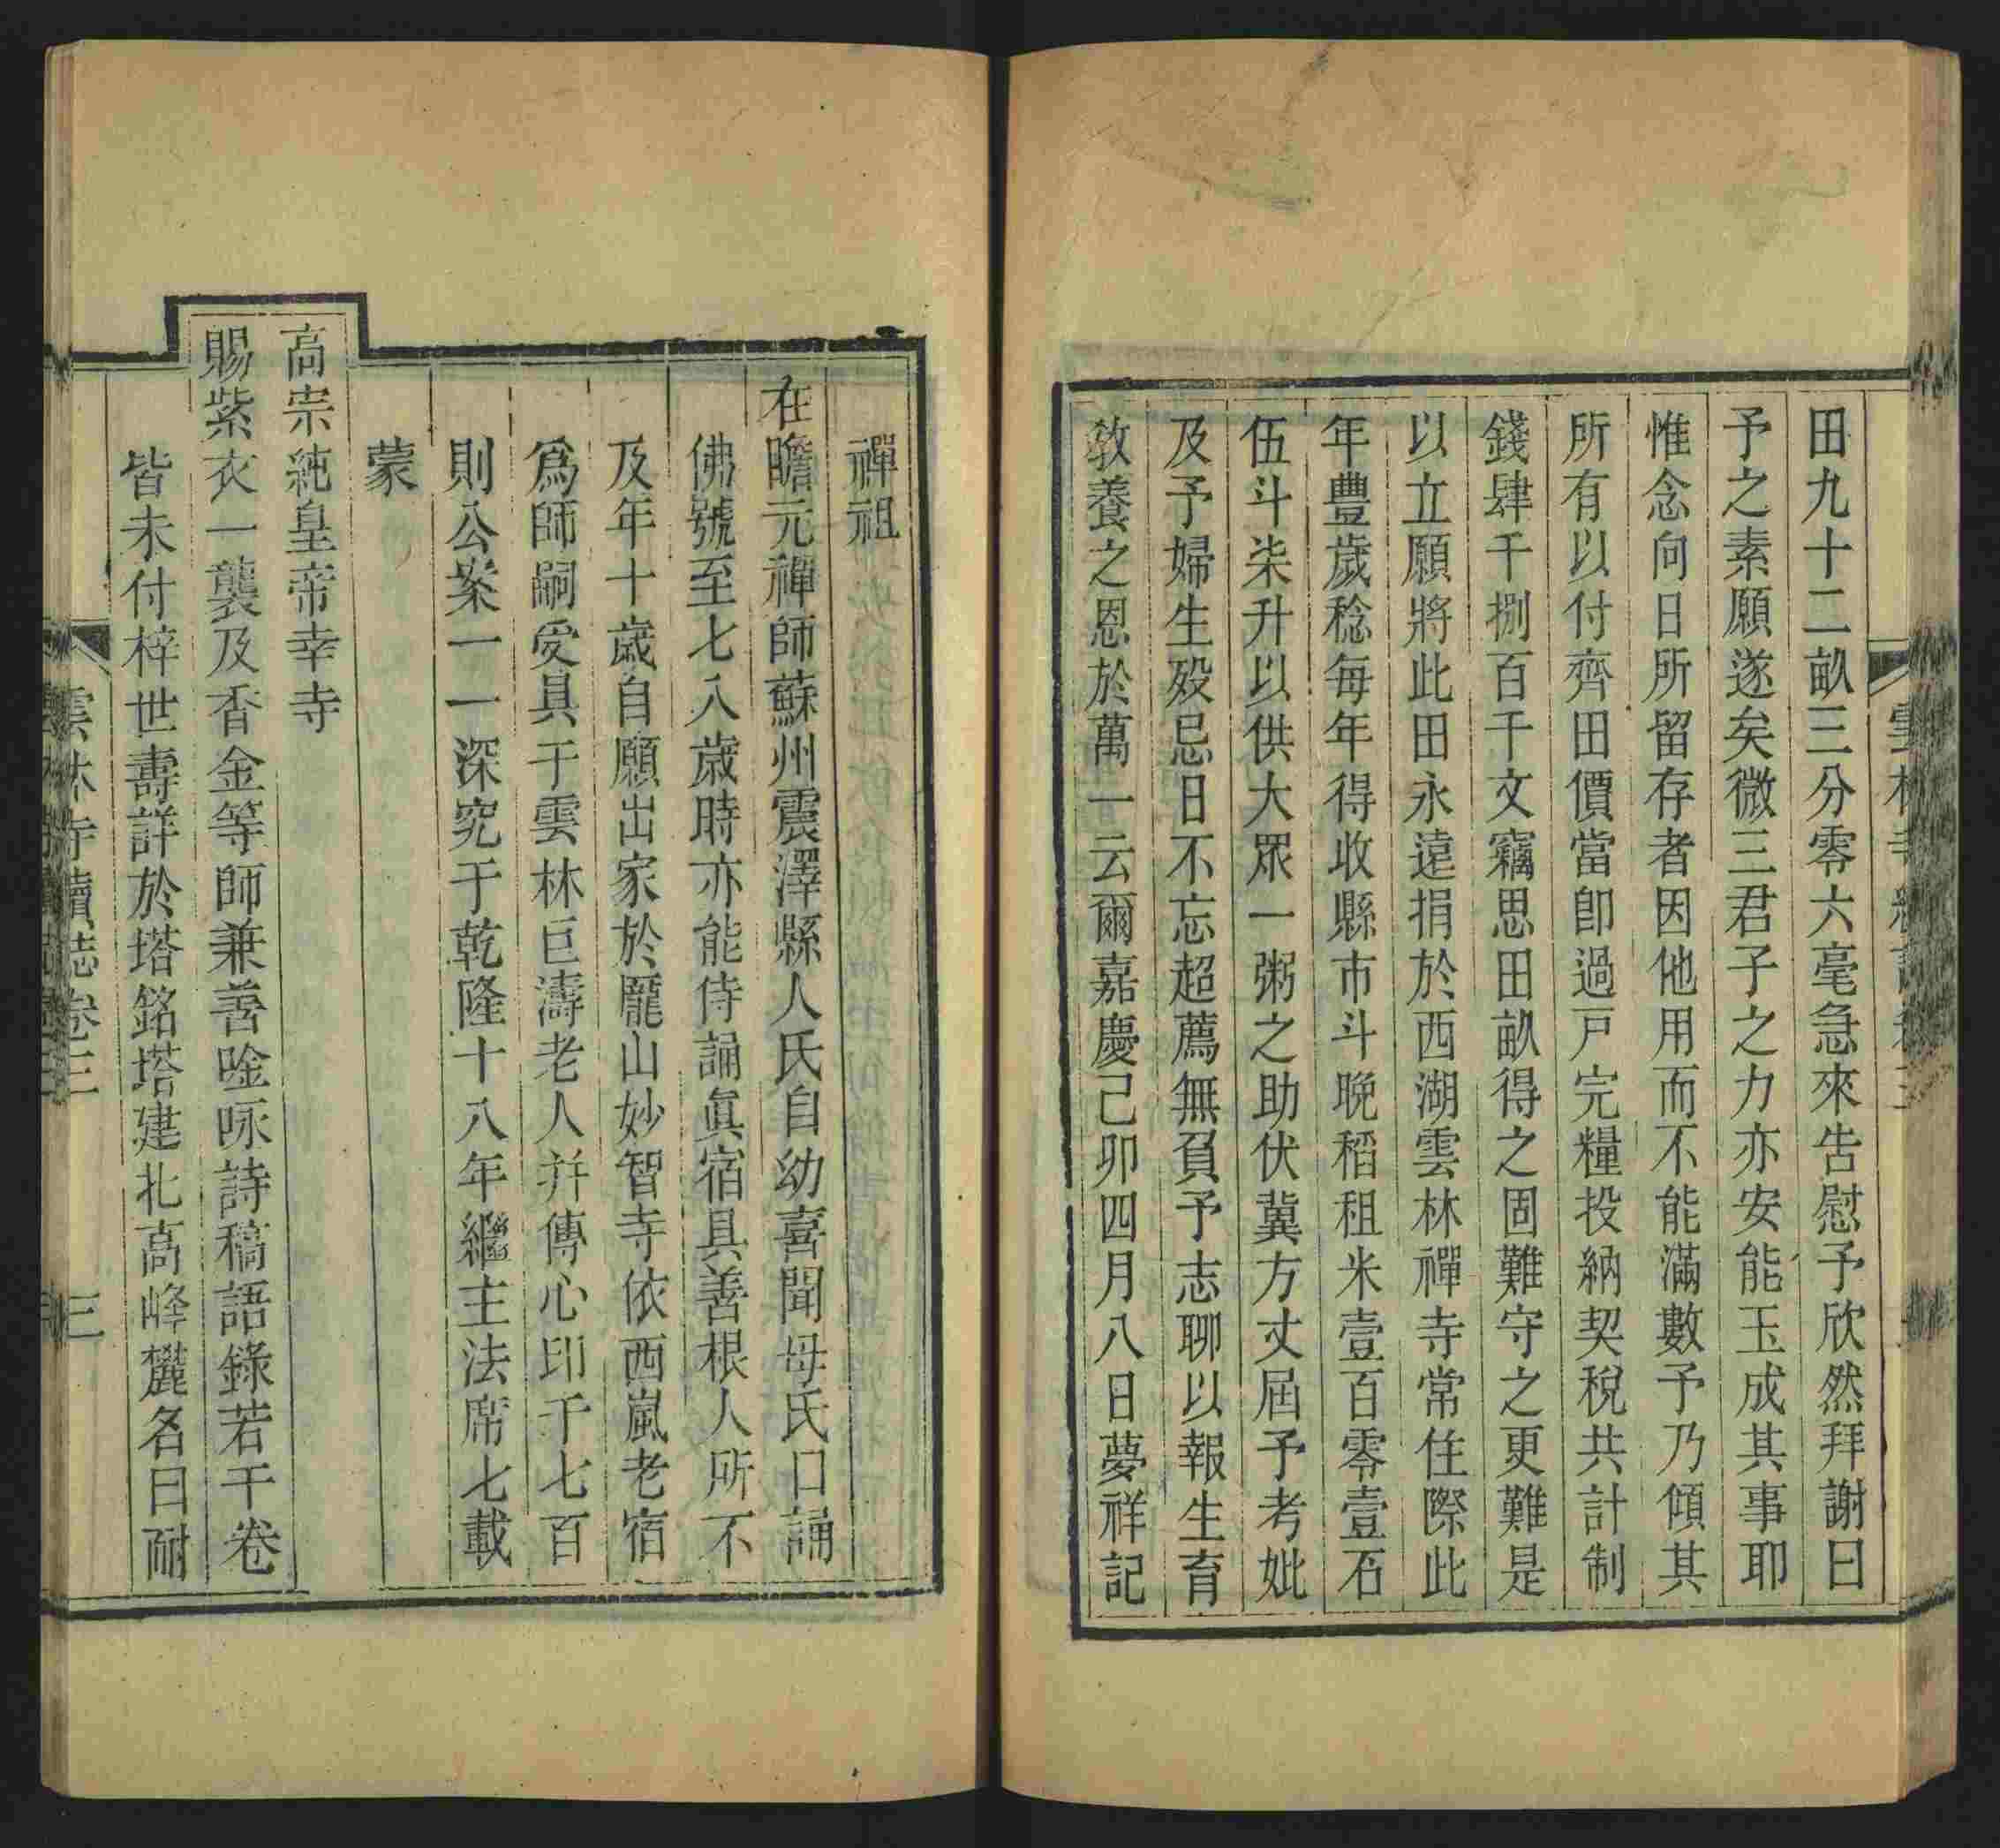 田九十二畝三分零六毫急來告慰予欣然拜謝曰
予之素願遂矣微三君子之力亦安能玉成其事耶
惟念向日所留存者因他用而不能滿數予乃傾其
所有以付齊田價當卽過戸完糧投納契稅共計制
錢肆千捌百千文竊思田畝得之固難守之更難是
以立願將此田永遠捐於西湖雲林禪寺常住際此
年豐歲稔每年得收縣市斗晚稻租米壹百零壹石
伍斗柒升以供大眾一粥之助伏冀方丈屆予考妣
及予婦生歿忌日不忘超薦無負予志聊以報生育
敎養之恩於萬一云爾嘉慶己卯四月八日夢祥記
禪祖
在瞻元禪師蘇州震澤縣人氏自幼喜聞母氏口誦
佛號至七八歲時亦能侍誦眞宿具善根人所不
及年十歲自願出家於龐山妙智寺依西嵐老宿
爲師嗣受具于雲林巨濤老人幷傳心印千七百
則公案一一深究于乾隆十八年繼主法席七載
蒙
高宗純皇帝幸寺
賜紫衣一襲及香金等師兼善唫咏詩稿語錄若干卷
皆未付梓世壽詳於塔銘塔建北高峰麓名曰耐
雲林寺續誌卷三
三